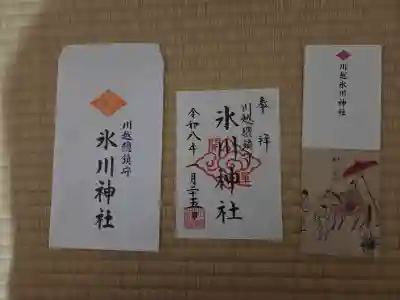 川越總鎮守
氷川神社
奉拝
川越總鎮守
氷川神社
令和八年一月二十五日
川越氷川神社